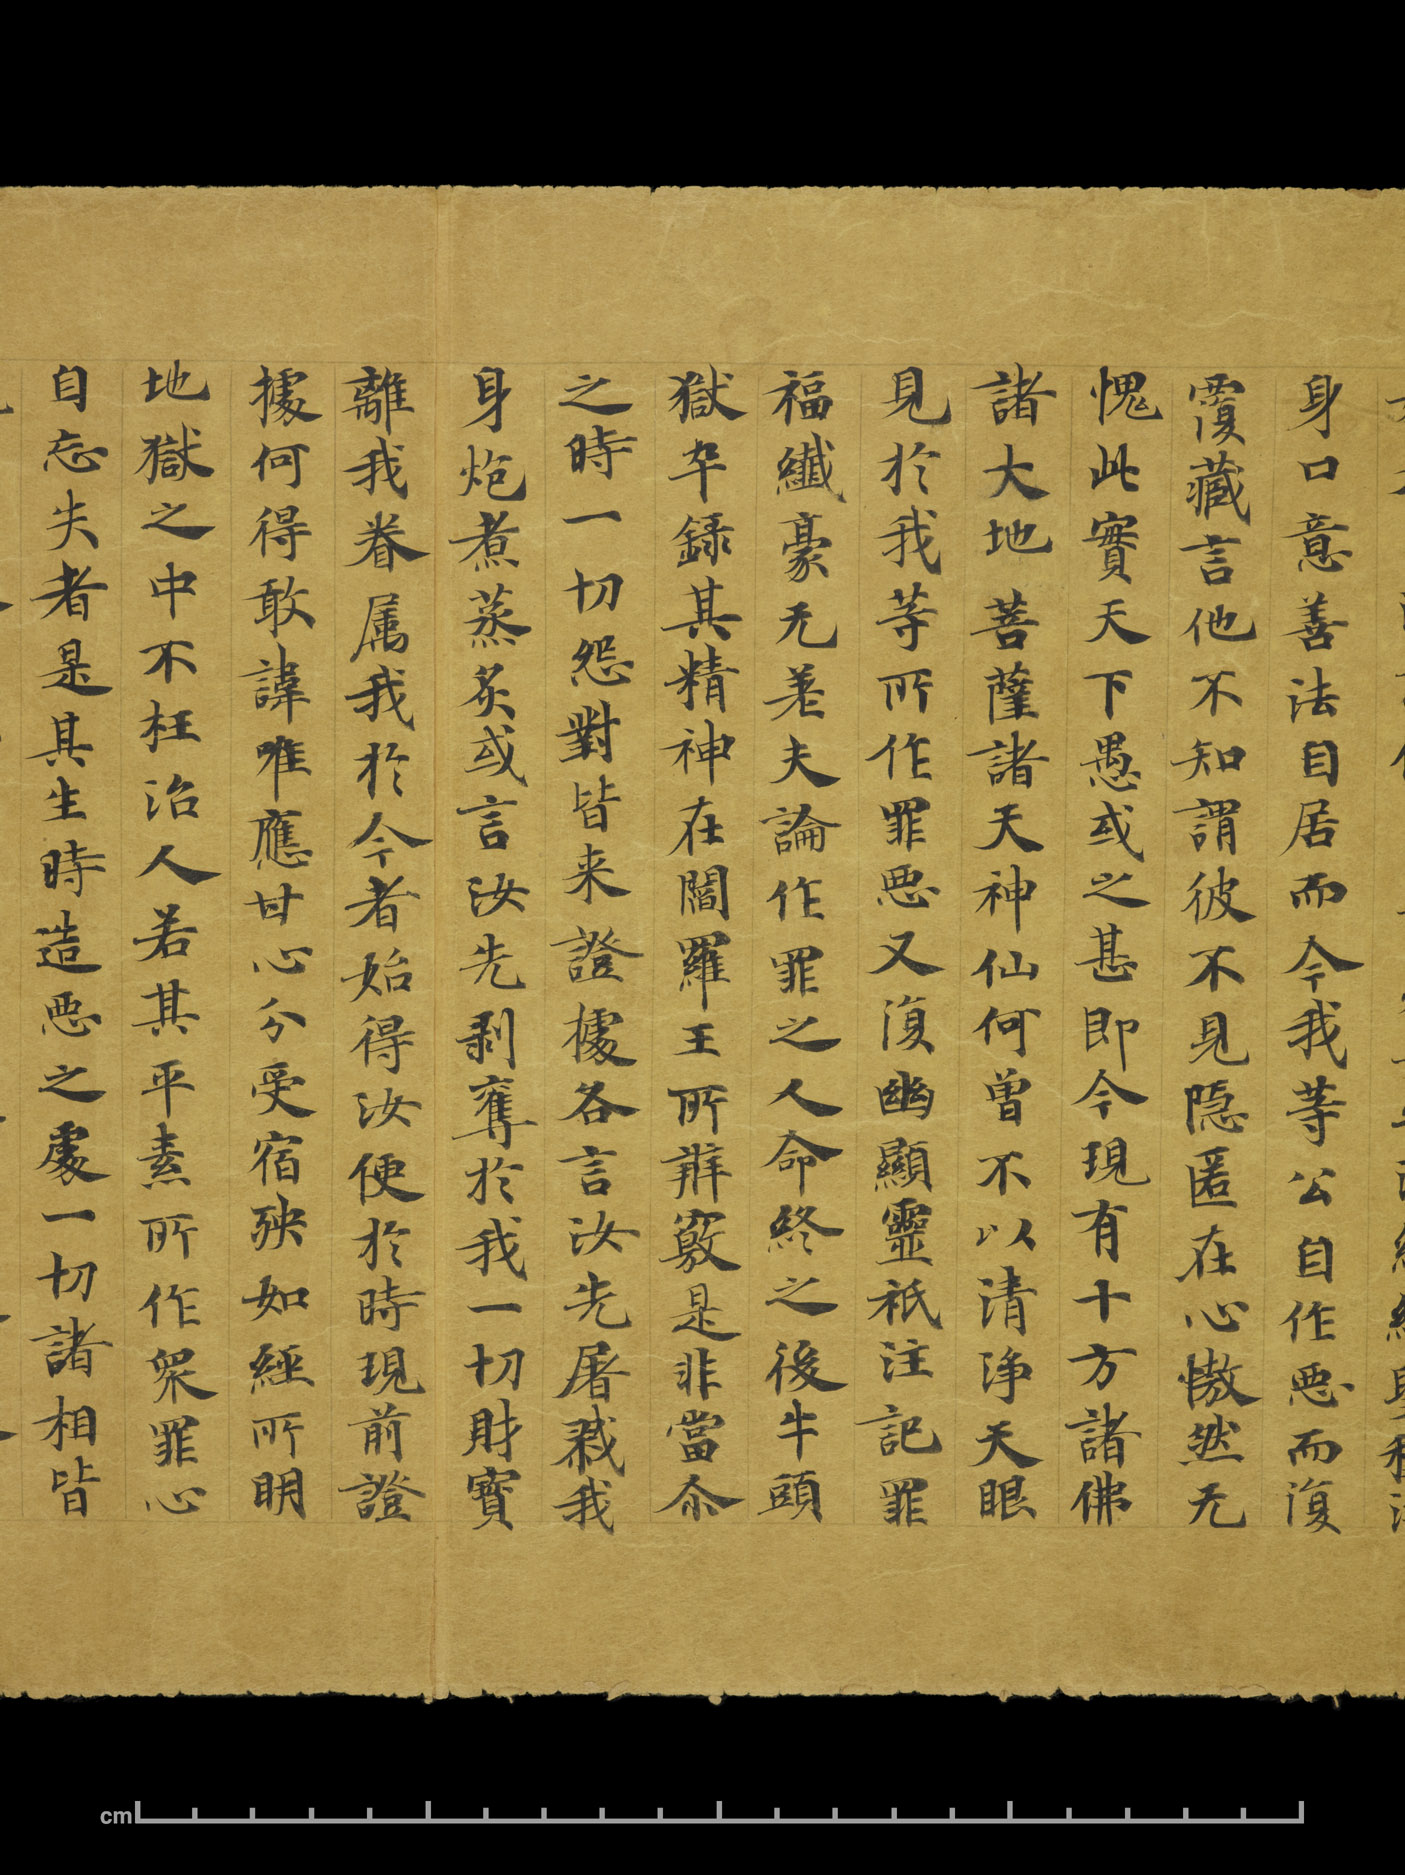 身口意善法自居而今我等公自作惡而復
覆藏言他不知謂彼不見隱匿在心慠然无
愧此實天下愚或之甚即今現有十方諸佛
諸大地菩薩諸天神仙何曾不以清淨天眼
見於我等所作罪惡又復幽顯靈祇注記罪
福纖豪无差夫論作罪之人命終之後牛頭
獄卒錄其精神在閻羅王所辯竅是非當尒
之時一切怨對皆来證據各言汝先屠戮我
身炮煮蒸炙或言汝先剥奪於我一切財寶
離我眷属我於今者始得汝便於時現前證
據何得敢諱唯應甘心分受宿殃如經所明
地獄之中不枉治人若其平素所作衆罪心
自忘失者是其生時造惡之處一切諸相皆
cm